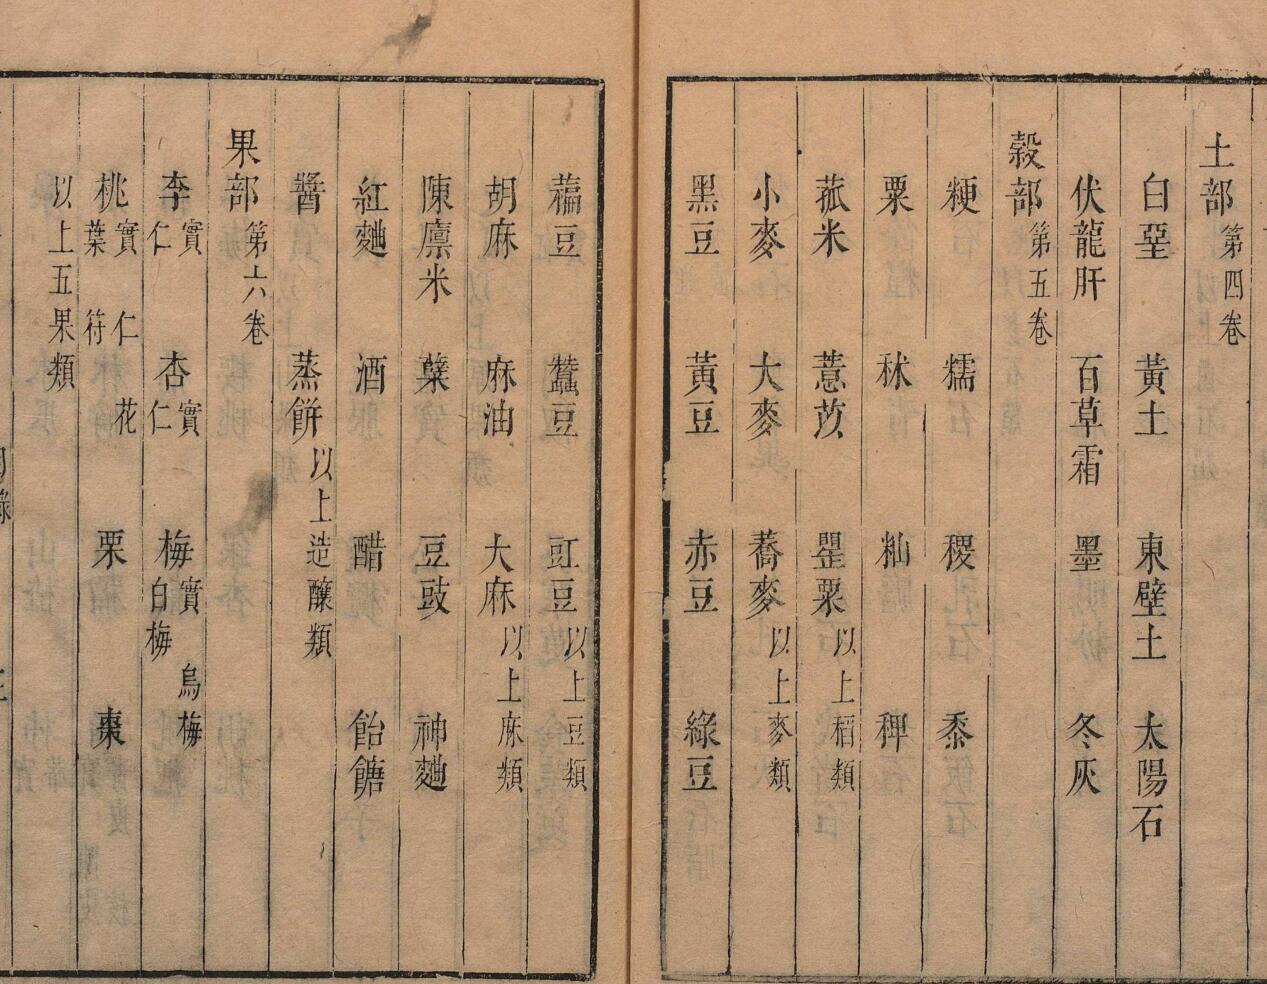 土部 第四卷
白堊 黃土 東壁土 太陽石
伏龍肝 百草霜 墨 冬灰
穀部 第五卷
粳 糯 稷 黍
粟 秫 秈 稗
菰米 薏苡 罌粟 以上稻類
小麥 大麥 蕎麥 以上麥類
黑豆 黃豆 赤豆 綠豆
藊豆 蠶豆 豇豆 以上豆類
胡麻 麻油 大麻 以上麻類
陳廩米 糵 豆豉 神麯
紅麯 酒 醋 飴餹
醬 蒸餅 以上造釀類
果部 第六卷
李 實 仁 杏 實 仁 梅 實 烏梅 白梅
桃 實 仁 花 葉 符 栗 棗
以上五果類